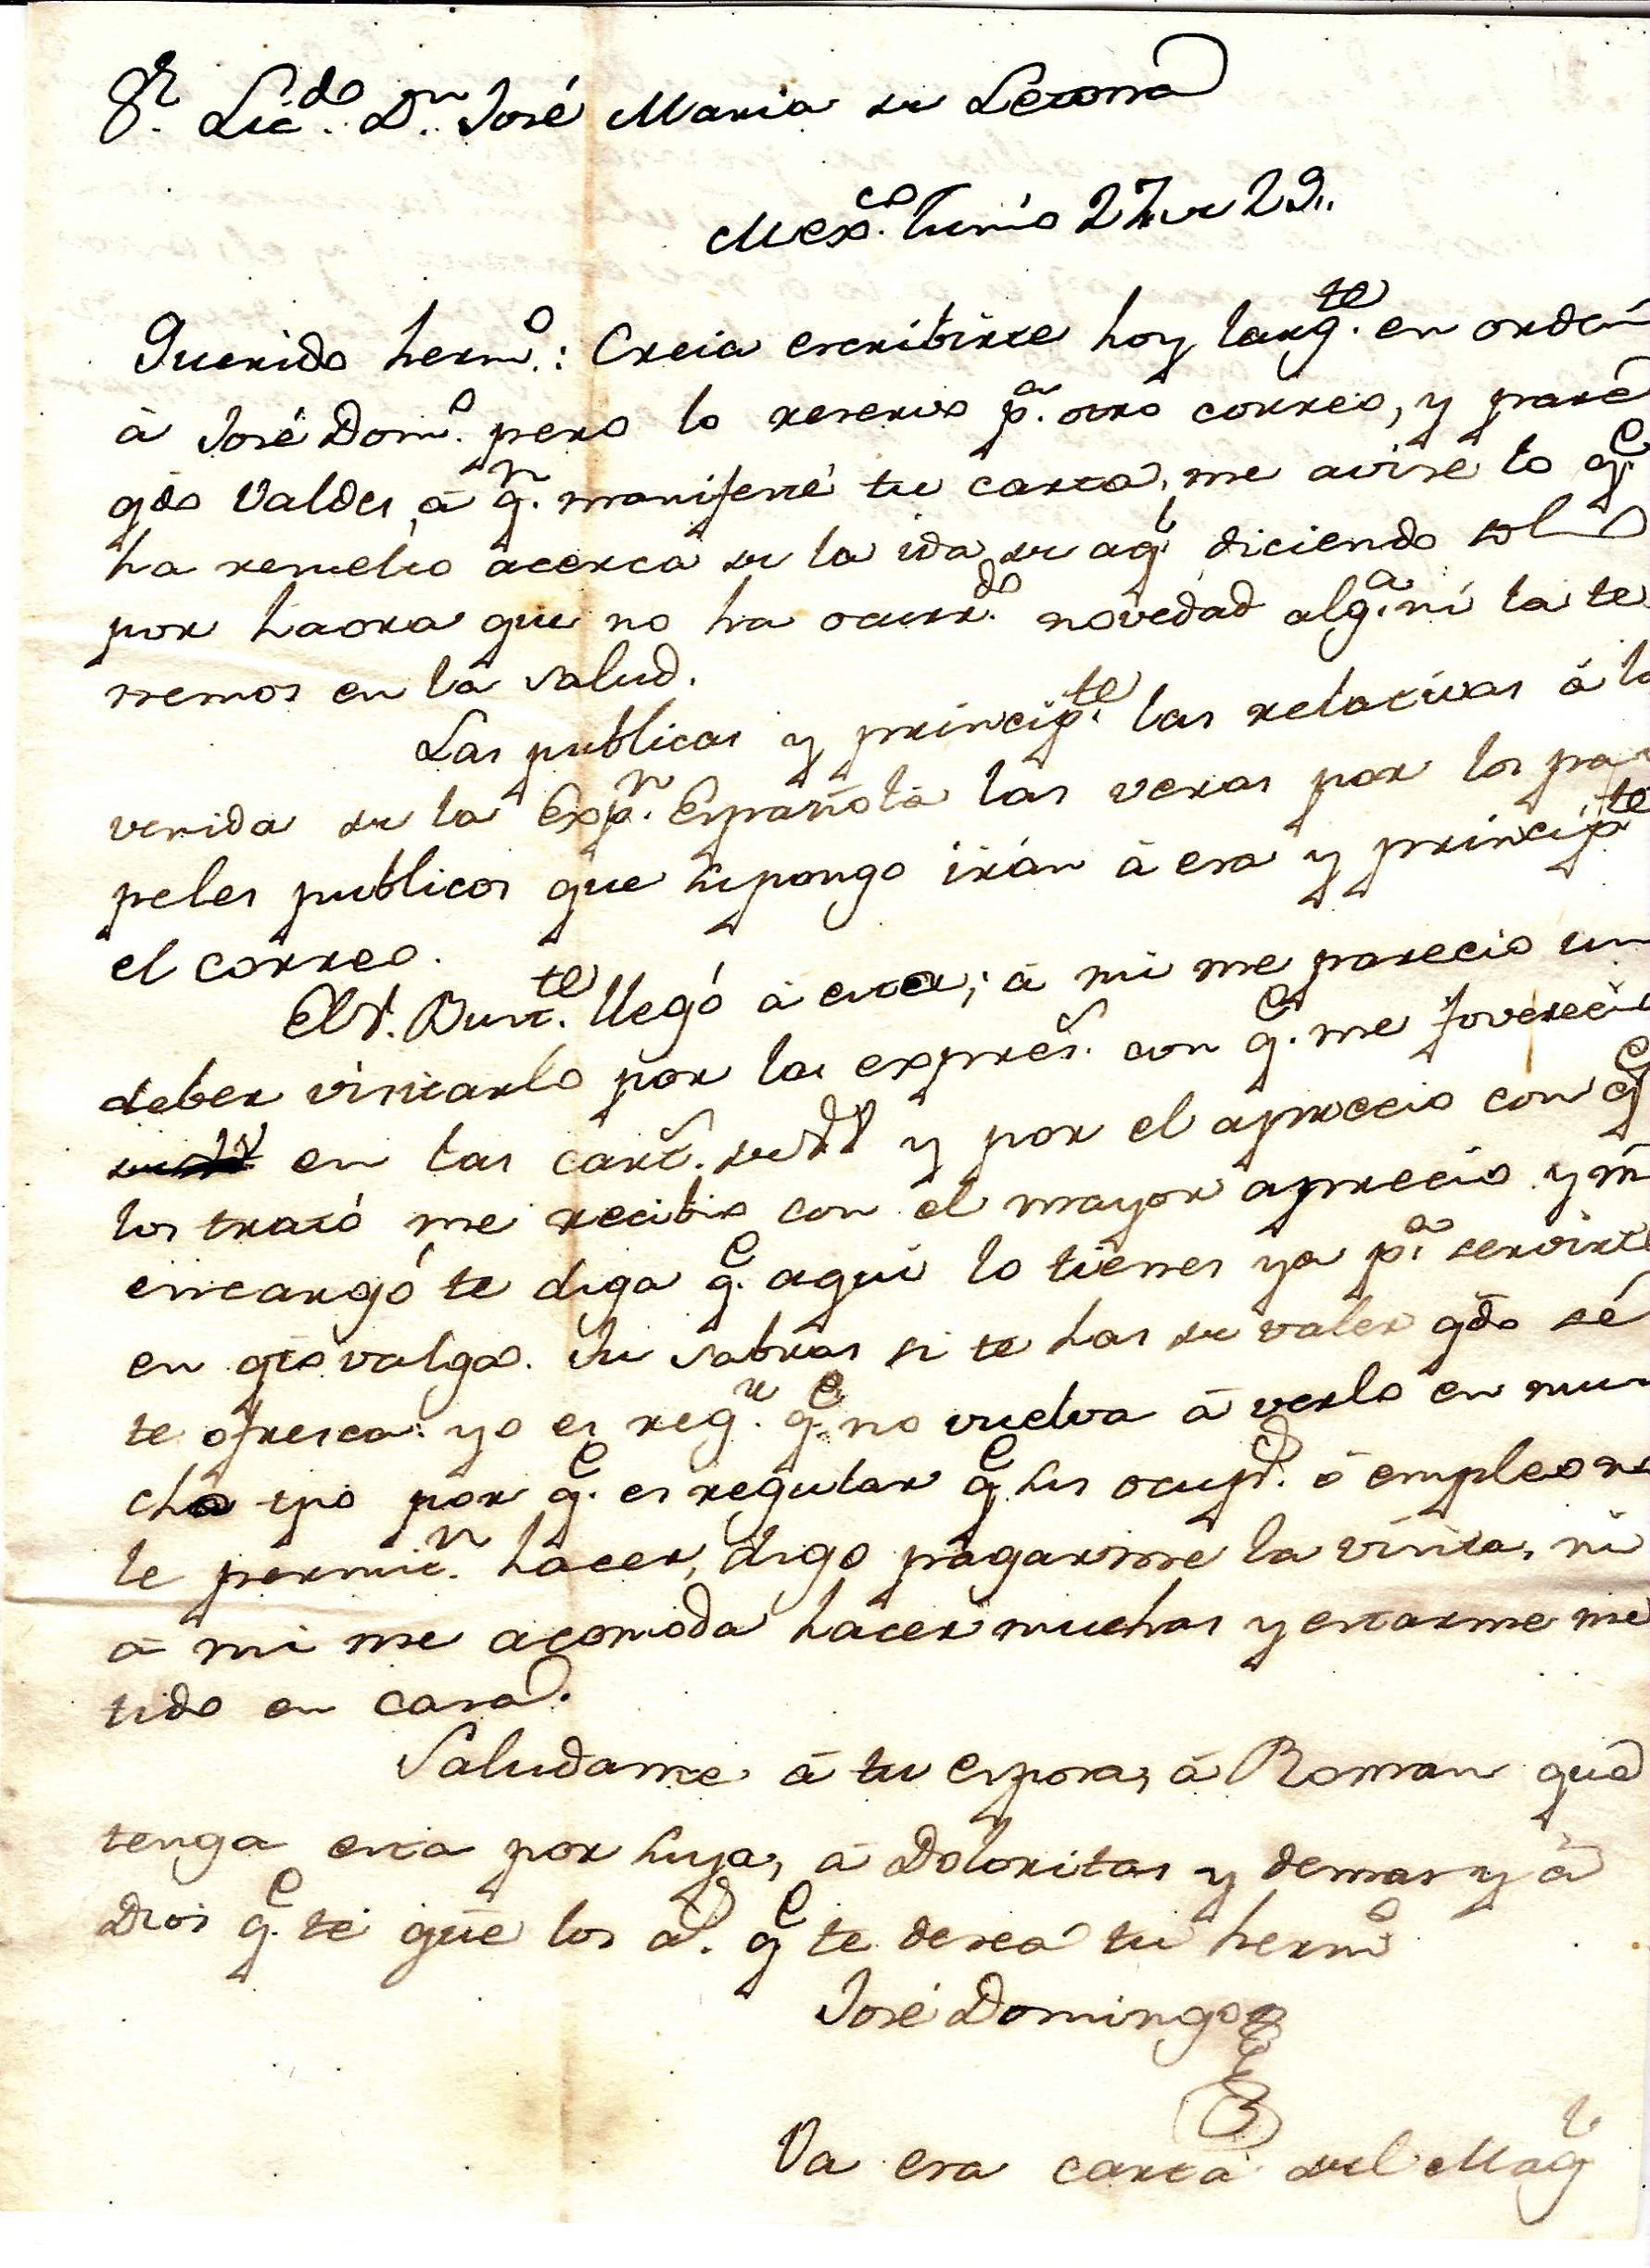 Sr. Licdo. Dn. José Maria de Letona
Mexco. Junio 27 de 29..
Querido hermo.: Creia escribirte hoy largte. en orden
à José Domo. pero lo reservo pa. otro correo, y para
qdo Valdes, à qn. manifesté tu carta, me avise lo qe.
ha resuelto acerca de la ida de aql diciendo solo
por haora que no ha ocurrdo. novedad alga. ni la te
nemos en la salud.
Las publicas y principte. las relativas à la
venida de la Expn. Española las veras por los pa
peles publicos que supongo irán à esa y principte
el correo.
El S. Bustte. llegó à esta; à mi me parecio un
deber visitarlo por las expres. con qe. me favorecio
en las cart. de VV y por el aprecio con qe
los trató me recibio con el mayor aprecio y m
encargó te diga qe. aqui lo tienes ya pa. servirte
en qto valga. Tu sabras si te has de valer qdo se
te ofresca: yo es regr. qe. no vuelva à verlo en mu
cho tpo por qe. es regular qe sus ocups. ò empleo no
le permitn. hacer, digo pagarme la visita, ni
à mi me acomoda hacer muchas y estarme me
tido en casa.
Saludame à tu esposa, à Roman que
tenga esta por suya, à Doloritas y demas y à
Dios qe. te gũe los as. qe te desea tu hermo
José Domingo
Va esa carta del Magl